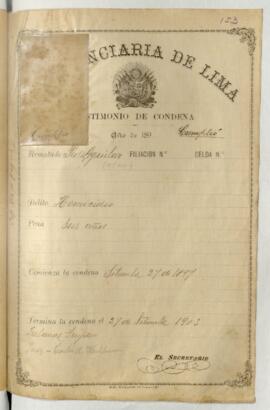 153
NCIARIA DE LIMA
TIMONIO DE CONDENA
Año de 189
Cumplió
Rematado Aguilar FILIACION Nº CELDA Nº
Delito Homicidio
Pena Seis años
Comienza la condena Setiembre 27 de 1897
Termina la condena el 27 de Setiembre 1903
EL SECRETARIO